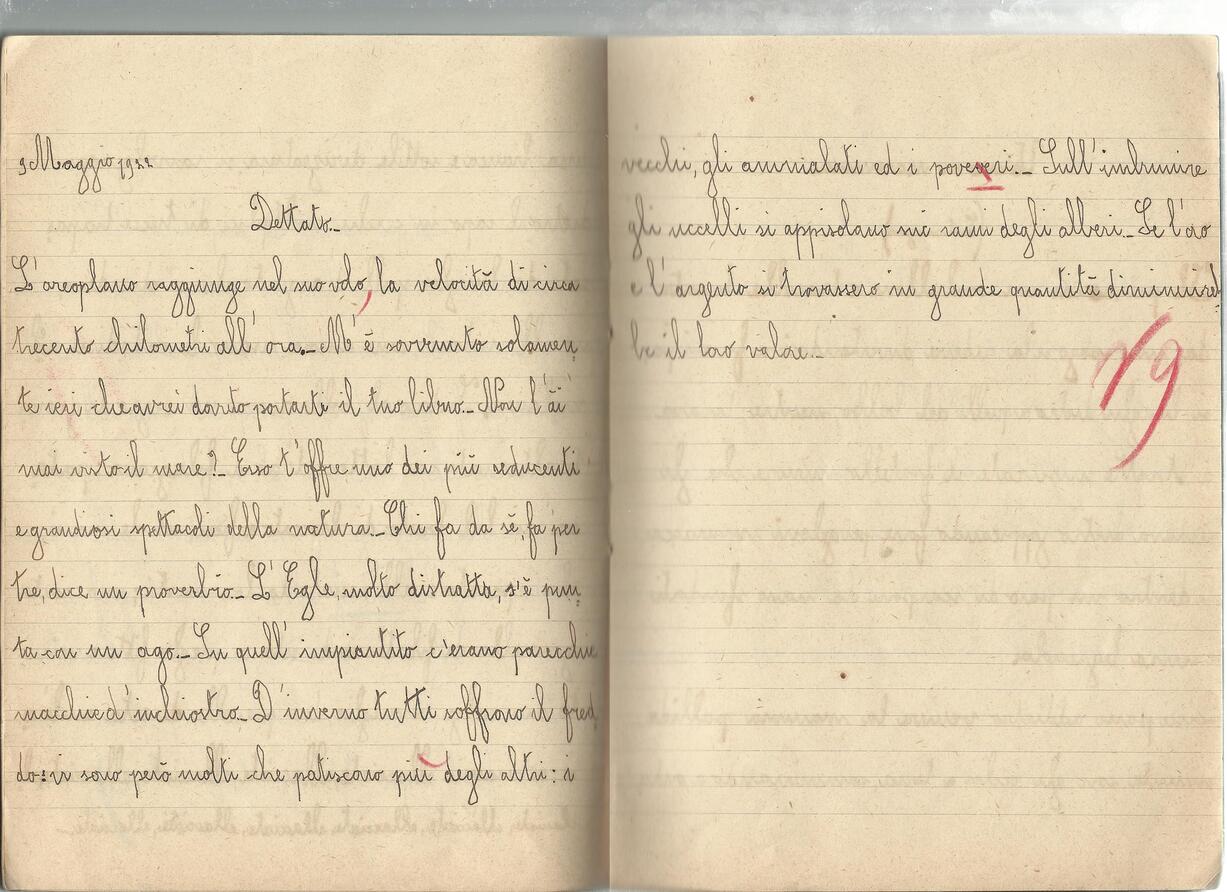 9 Maggio 1922
Dettato.-
L'areoplano raggiunge nel suo volo, la velocità di circa
trecento chilometri all'ora.- M'è sovvenuto solamen-
te ieri che avrei dovuto portarti il tuo libro.- Non l'ài
mai visto il mare?- Esso t'offre uno dei più seducenti
e grandiosi spettacoli della natura.- Chi fa da sè, fa per
tre, dice un proverbio.- L'Egle, molto distratta, s'è pun-
ta con un ago.- Su quell'impiantito c'erano parecchie
macchie d'inchiostro.- D'inverno tutti soffrono il fred-
do: vi sono però molti che patiscono più degli altri: i
vecchi, gli ammalati ed i poveveri.- Sull'imbrunire
gli uccelli si appisolano sui rami degli alberi.- Se l'oro
e l'argento si trovassero in grande quantità diminuireb-
be il loro valore.-